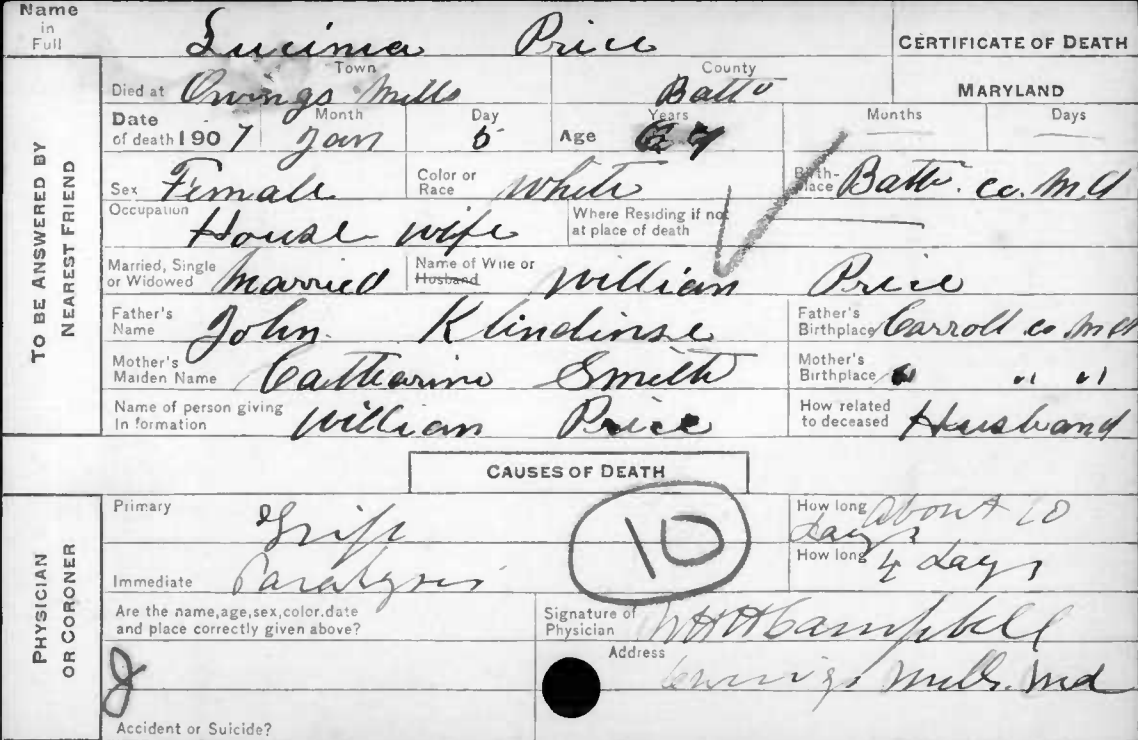 Name in Full Lucinia Price CERTIFICATE OF DEATH
TO BE ANSWERED BY NEAREST FRIEND
Town County
Died at Owings Mills Balto MARYLAND
Date of death 1907 Month Jan Day 5 Age Years Months — Days —
Sex Female Color or Race White Birth-place Balto. co. Md
Occupation House wife Where Residing if not at place of death —
Married, Single or Widowed Married Name of Wife or Husband William Price
Father's Name John Klindinse Father's Birthplace Carroll co Md
Mother's Maiden Name Catharine Smith Mother's Birthplace " " "
Name of person giving In formation William Price How related to deceased Husband
CAUSES OF DEATH
PHYSICIAN OR CORONER
Primary Grip How long about 10 days
10
Immediate Paralysis How long 4 days
Are the name,age,sex,color.date and place correctly given above? Signature of Physician WHH Campbell
Address Owings Mills. Md
Accident or Suicide?